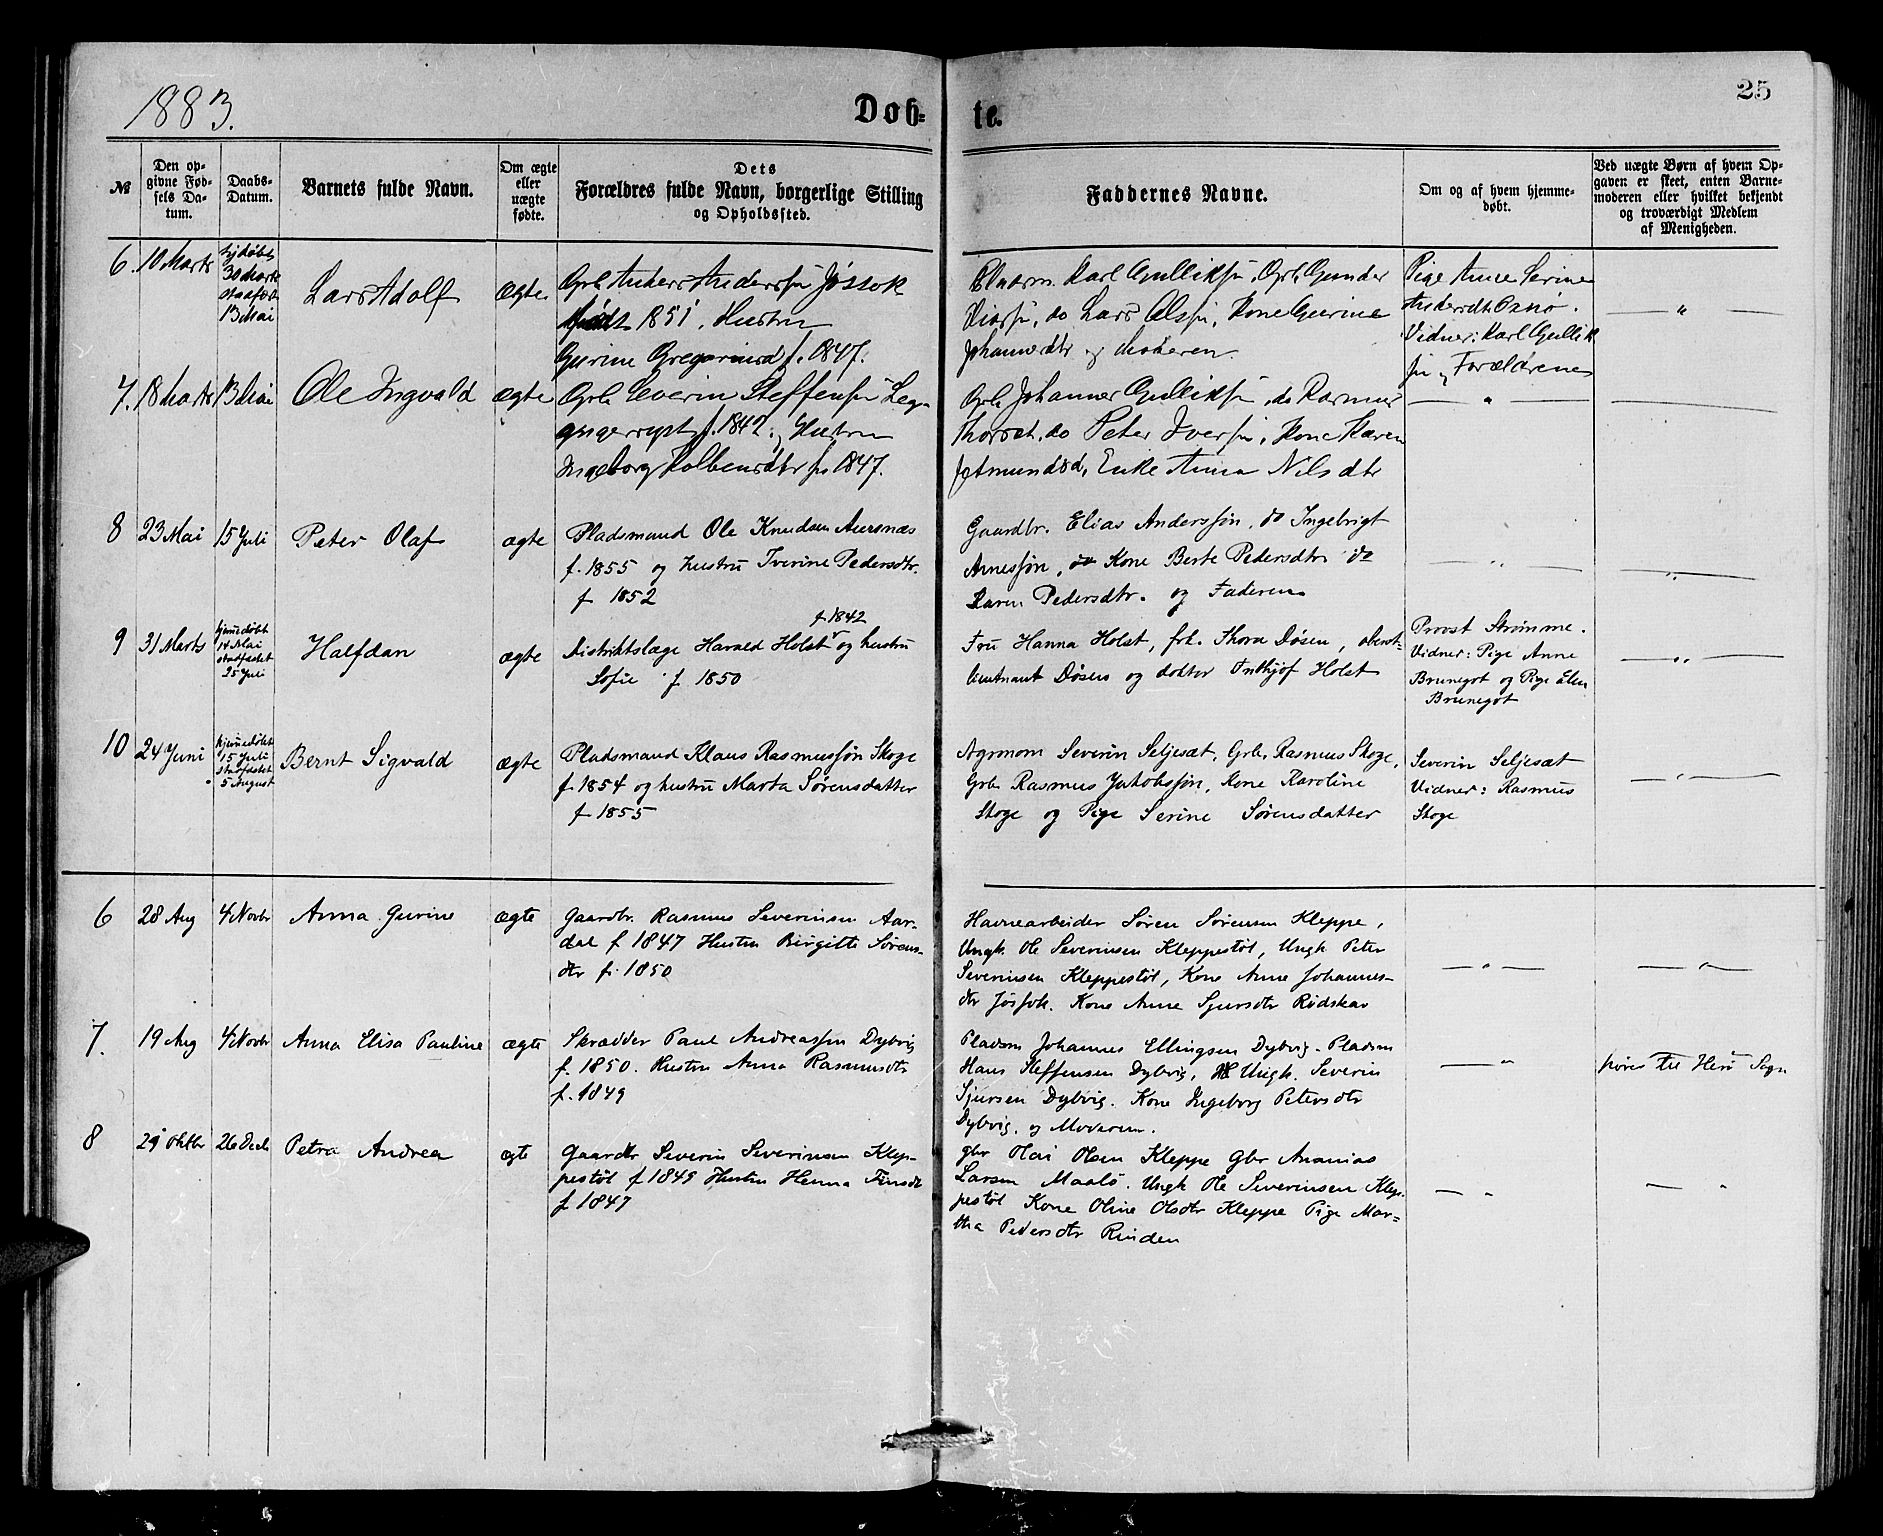 1883.
Døb=
te.
25
№
Den op-
givne Fød-
sels Da-
tum.
Daabs-
Datum.
Barnets fulde Navn.
Om ægte
eller
uægte
fødte.
Dets
Forældres fulde Navn, borgerlige Stilling
og Opholdssted.
Faddernes Navne.
Om og af hvem hjemme-
døbt.
Ved uægte Børn af hvem Op-
gaven er skeet, enten Barne-
moderen eller hvilket bekjendt
og troværdigt Medlem
af Menigheden.
6. 10 Marts
hjdøbt
30 Marts
stadfæst
13 Mai
Lars Adolf
ægte
Grb. Anders Anderssøn Jøssok
født 1851, Hustru
Gurine Gregoriusd f. 1847.
Pladsm. Karl Gulliksøn, Grb. Gunder
do Lars Olssøn, Kone Gurine
Johannesdtr og Moderen.
Pige Anne Serine
Andersdtr
Vidner: Karl Gullik
søn og Forældrene
"
7. 18 Marts 13 Mai
Ole Ingvald
ægte
Grb. Severin Steffensøn Leg-
f. 1842. og Hustru
Ingeborg Kolbensdtr f. 1847.
Grb. Johannes Gulliksøn, do Rasmus
do Peter Iversøn, Kone Karen
Enke Anna Nilsdtr
"
8 23 Mai 15 Juli
Peter Olaf
ægte
Pladsmand Ole Knudsen Aursnæs
f. 1855 og hustru Iverine Pedersdtr.
f 1852
Gaardbr. Elias Anderssøn, do Ingebrigt
Arnessøn, do Kone Berte Pedersdtr do
Karen Pedersdtr. og Faderen
"
"
9 31 Marts
hjemmedøbt
14 Mai
stadfæstet
25 Juli
Halfdan
ægte
f 1842
Distriktslæge Harald Holst og hustru
Sofie f 1850
Fru Hanna Holst, frk. Thora Døsen, oberst-
lieutnant Døsen og doktor Frithjof Holst
Provst Strømme.
Vidner: Pige Anne
Brunegot og Pige Elen
Brunegot
"
10 24 Juni
hjemmedøbt
15 Juli
stadfæstet
5 August
Bernt Sigvald
ægte
Pladsmand Klaus Rasmussøn Skoge
f. 1854 og hustru Marta Sørensdatter
f 1855
Agronom Severin Seljesæt, Grb. Rasmus Skoge,
Grb. Rasmus Jakobssøn, Kone Karoline
Skoge og Pige Serine Sørensdatter
Severin Seljesæt
Vidner: Rasmus
Skoge
"
6 28 Aug 4 Novbr
Anna Gurine
ægte
Gaardbr. Rasmus Severinsen Aar-
dal f 1847 Hustru Birgitte Sørens-
dtr f. 1850
Havnearbeider Søren Sørensen Kleppe,
Ungk. Ole Severinsen Kleppestøl, Ungk Peter
Severinsen Kleppestøl, Kone Anne Johannes-
dtr Jøsfok. Kone Anne Sjursdtr Rødskar
"
"
7. 19 Aug 4 Novbr
Anna Elisa Pauline
ægte
Skrædder Paul Andreassen Dybvig
f. 1850. Hustru Anna Rasmusdtr
f. 1849
Pladsm Johannes Ellingsen Dybvig. Pladsm
Hans Steffensen Dybvig, Ungk. Severin
Sjursen Dybvig. Kone Ingeborg Petersdtr
Dybvig. og Moderen.
"
hører til Herø Sogn
8 29 Oktbr 26 Decb
Petra Andrea
ægte
Gaardbr Severin Severinsen Klep-
pestøl f 1849 Hustru Henna Finsdtr
f 1847
Gbr Olai Olsen Kleppe Gbr Ananias
Larsen Maalø. Ungk Ole Severinsen Klep-
pestøl Kone Oline Olsdtr Kleppe Pige Mar-
tha Pedersdtr Rinden
"
"